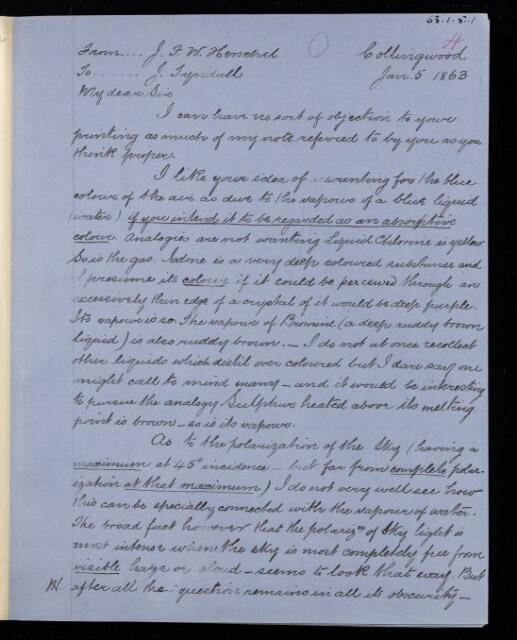 63-1-5-1
H
From.... J. F. W. Herschel Collingwood
To....... J. Tyndall Jan 5 1863
My dear Sir
I can have no sort of objection to your
printing as much of my note referred to by you as you
think proper.
I like your idea of accounting for the blue
colour of the air as due to the vapour of a blue liquid
(water) if you intend it to be regarded as an absorptive
colour. Analogies are not wanting Liquid Chlorine is yellow
So is the gas. Iodine is a very deep coloured substance and
I presume its colour, if it could be perceived through an
excessively thin edge of a crystal of it would be deep purple.
Its vapour is so. The vapour of Bromine (a deep ruddy brown
liquid) is also ruddy brown. — I do not at once recollect
other liquids which distil over coloured but I dare say one
might call to mind many — and it would be interesting
to pursue the analogy Sulphur heated above its melting
point is brown — so is its vapour.
As to the polarization of the sky (having a
maximum at 45° incidence — but far from complete polar-
ization at that maximum) I do not very well see how
this can be specially connected with the vapour of water.
The broad fact however that the polarizn of sky light is
most intense when the sky is most completely free from
visible haze or cloud — seems to look that way. But
after all the question remains in all its obscurity —